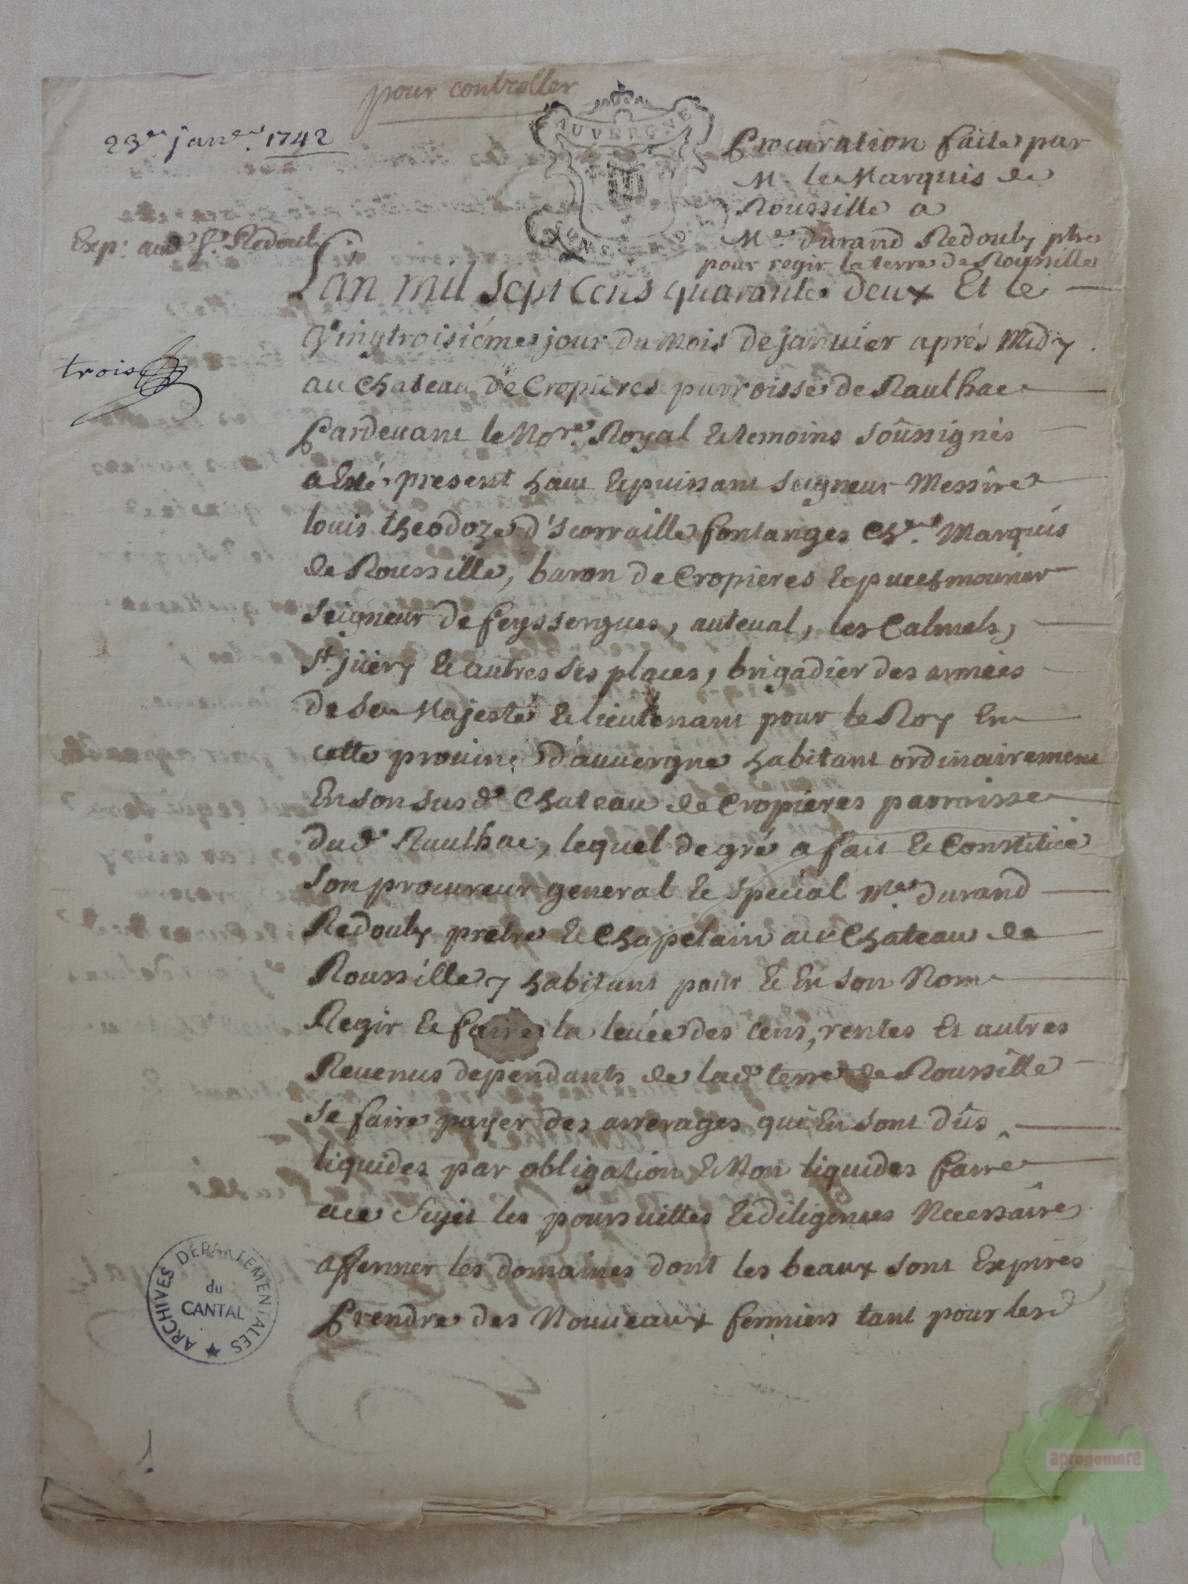 pour controller
23en janer. 1742
AUVERGNE
Procuration faite par
Mr. le Marquis de
Roussille a
Me. durand Redouly ptre
pour regir la terre de Roussille
Exp. aud. Sr. Redouly
Lan mil Sept Cens quarante deux Et le
Vingtroisiéme jour du mois de janvier aprés Midy
trois
au Chateau de Cropieres parroisse de Raulhac
Pardevant le Nore. Royal & temoins soûssignés
a Eté present haut & puissant seigneur Messire
louis theodoze d'Scorraille fontanges Cher. Marquis
de Roussille, baron de Cropieres & puechmourier
seigneur de feyssergues, auteval, les Calmels,
St juery & autres ses places, brigadier des armées
de Sa Majesté & lieutenant pour le Roy En
cette province d'auvergne habitant ordinairement
En son susd. Chateau de Cropieres parroisse
dud. Raulhac, lequel de gré a fait & Constitué
son procureur general & special Me. durand
Redouly prêtre & Chapelain au Chateau de
Roussille y habitant pour & En son Nom
Regir & faire la levée des Cens, rentes Et autres
Revenus dependants de lad. terre de Roussille
se faire payer des arrerages qui En sont dûs
liquides par obligation & Non liquides faire
a ce Sujet les poursuittes & diligences Necessaires
affermer les domaines dont les beaux sont Expirés
Prendre des Nouveaux fermiers tant pour lesd
ARCHIVES DÉPARTEMENTALES
du
CANTAL
aprogemere